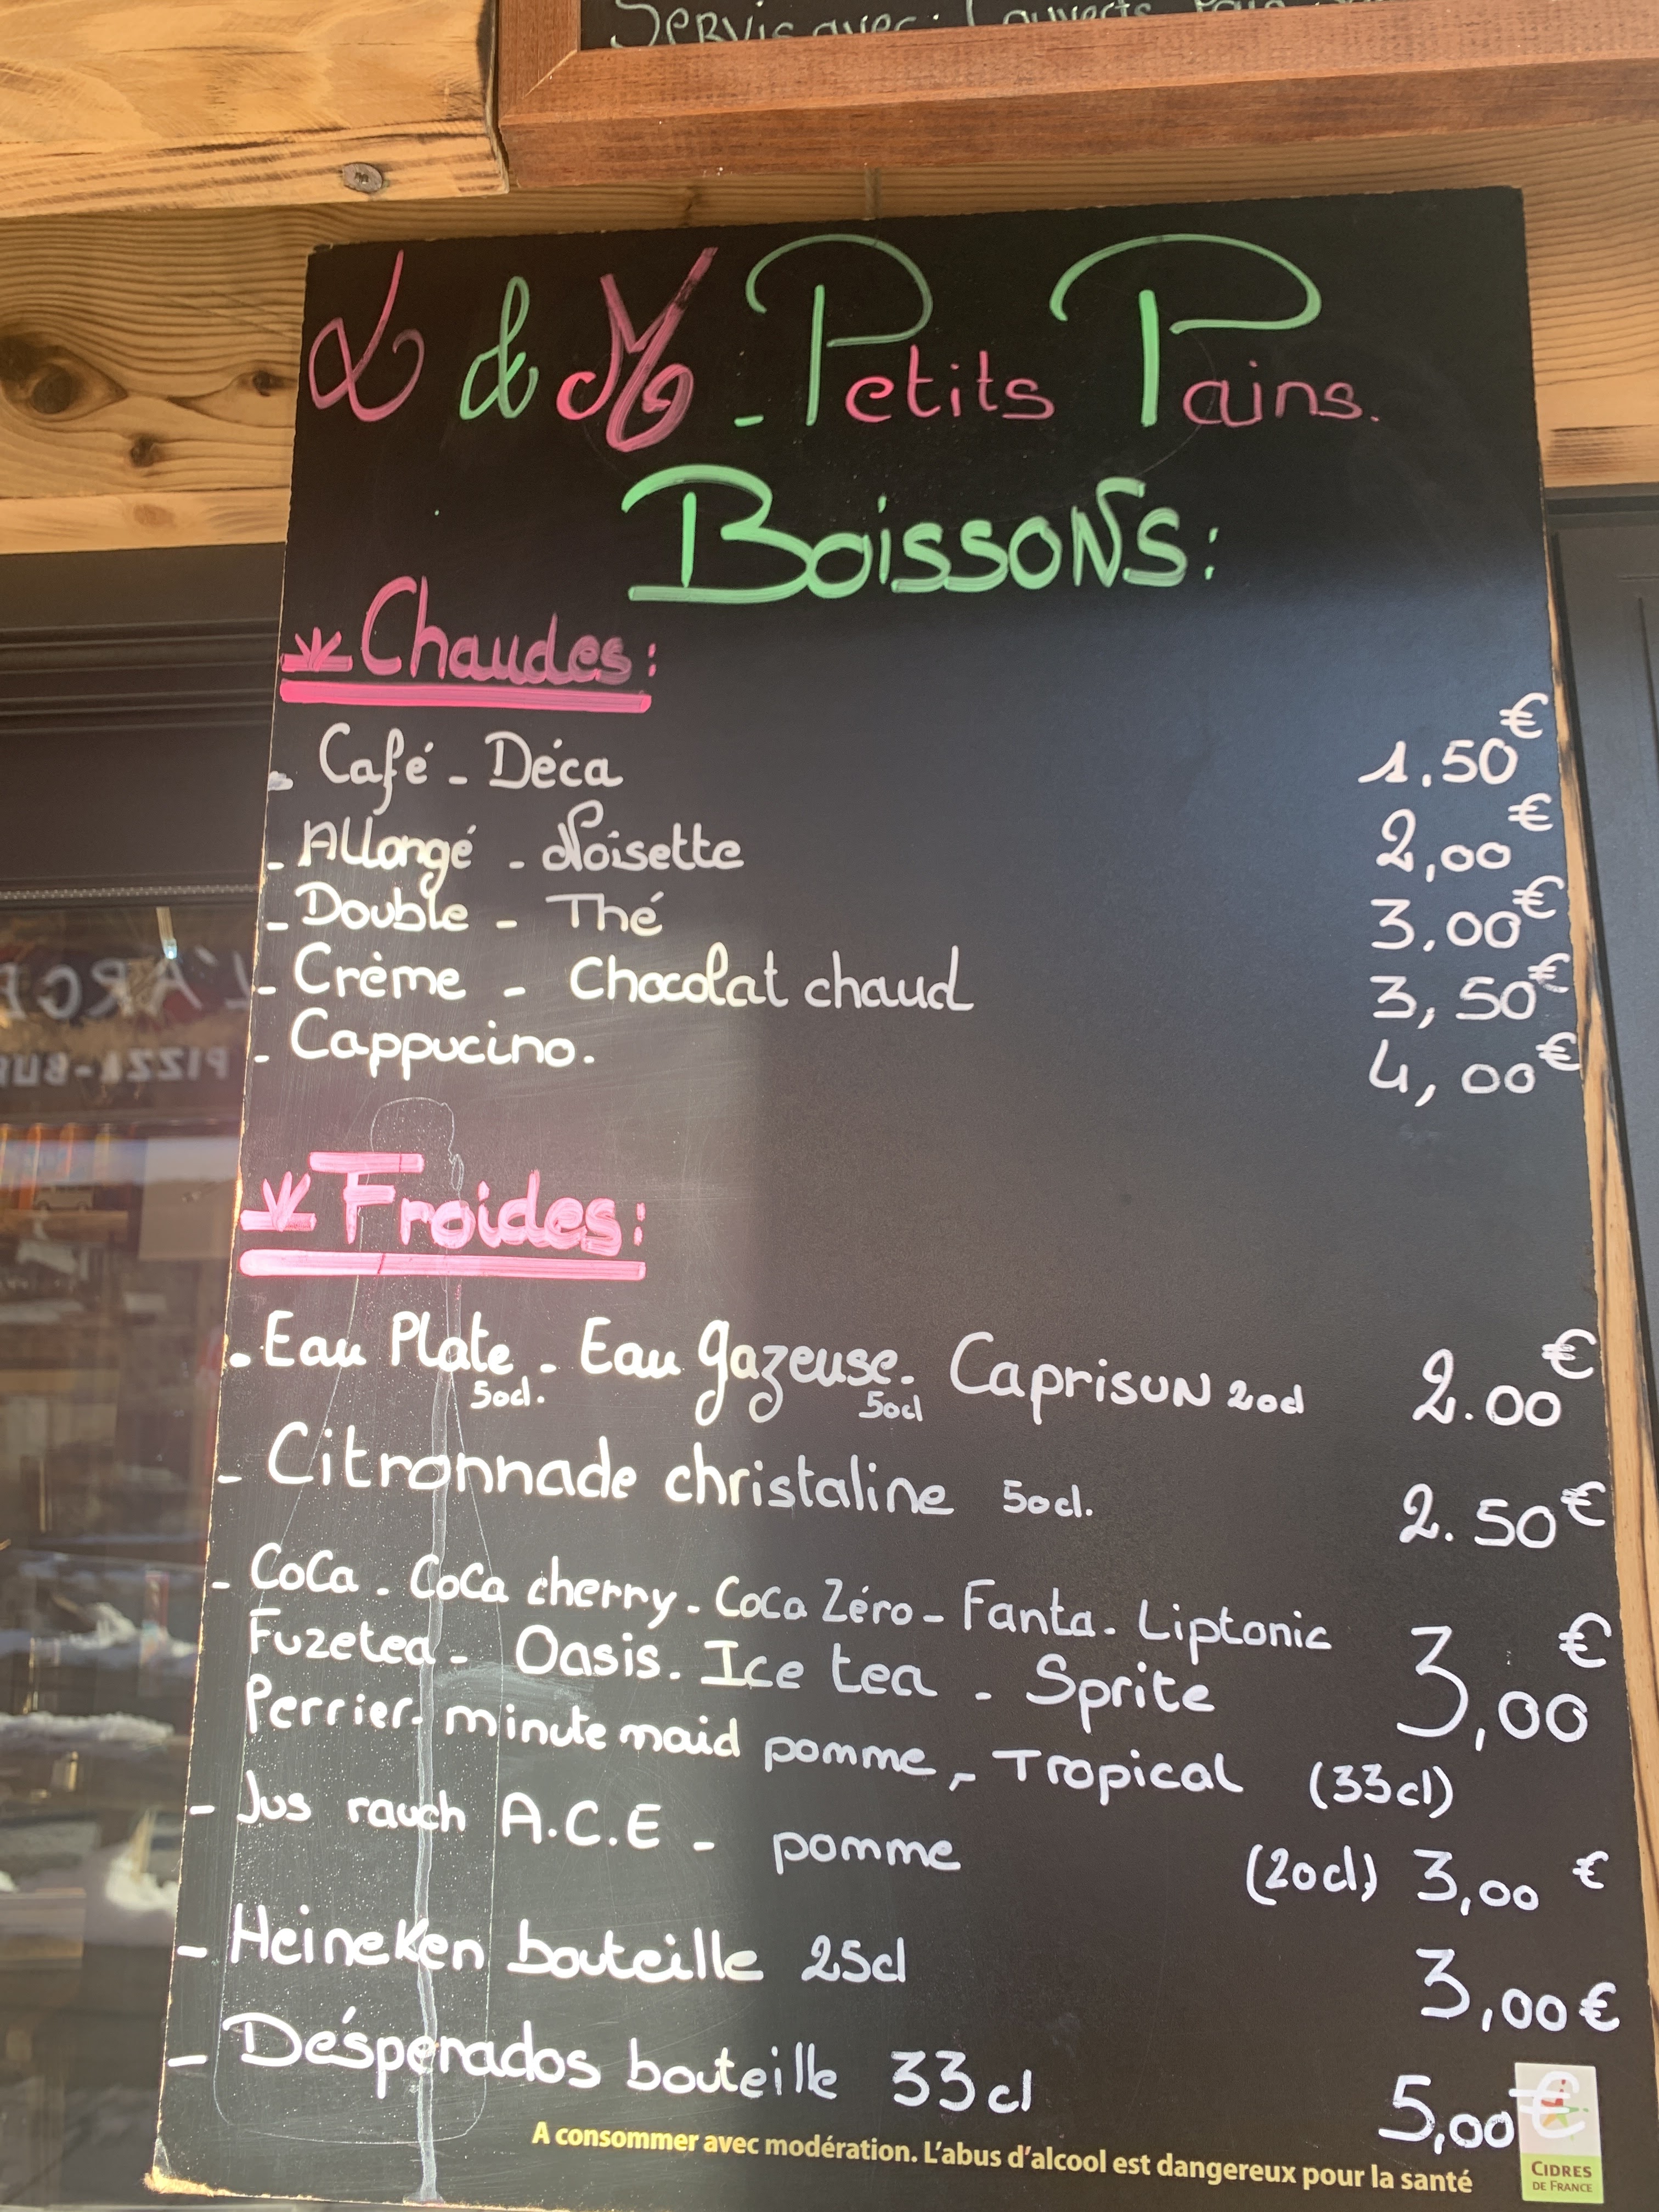 Servis avec: Couverts Pain
L & M - Petits Pains.
Boissons:
Chaudes:
- Café - Déca 1.50€
- Allongé - Noisette 2,00€
- Double - Thé 3,00€
- Crème - Chocolat chaud 3,50€
- Cappucino. 4,00€
Froides:
- Eau Plate 50cl. - Eau gazeuse 50cl - Caprisun 20cl 2.00€
- Citronnade christaline 50cl. 2.50€
- Coca - Coca cherry - Coca Zéro - Fanta - Liptonic
Fuzetea - Oasis - Ice tea - Sprite 3,00€
Perrier - minute maid pomme, - Tropical (33cl)
- Jus rauch A.C.E - pomme (20cl) 3,00€
- Heineken bouteille 25cl 3,00€
- Désperados bouteille 33cl 5,00€
A consommer avec modération. L'abus d'alcool est dangereux pour la santé
CIDRES
DE FRANCE
L'ARG
PIZZA-BUR